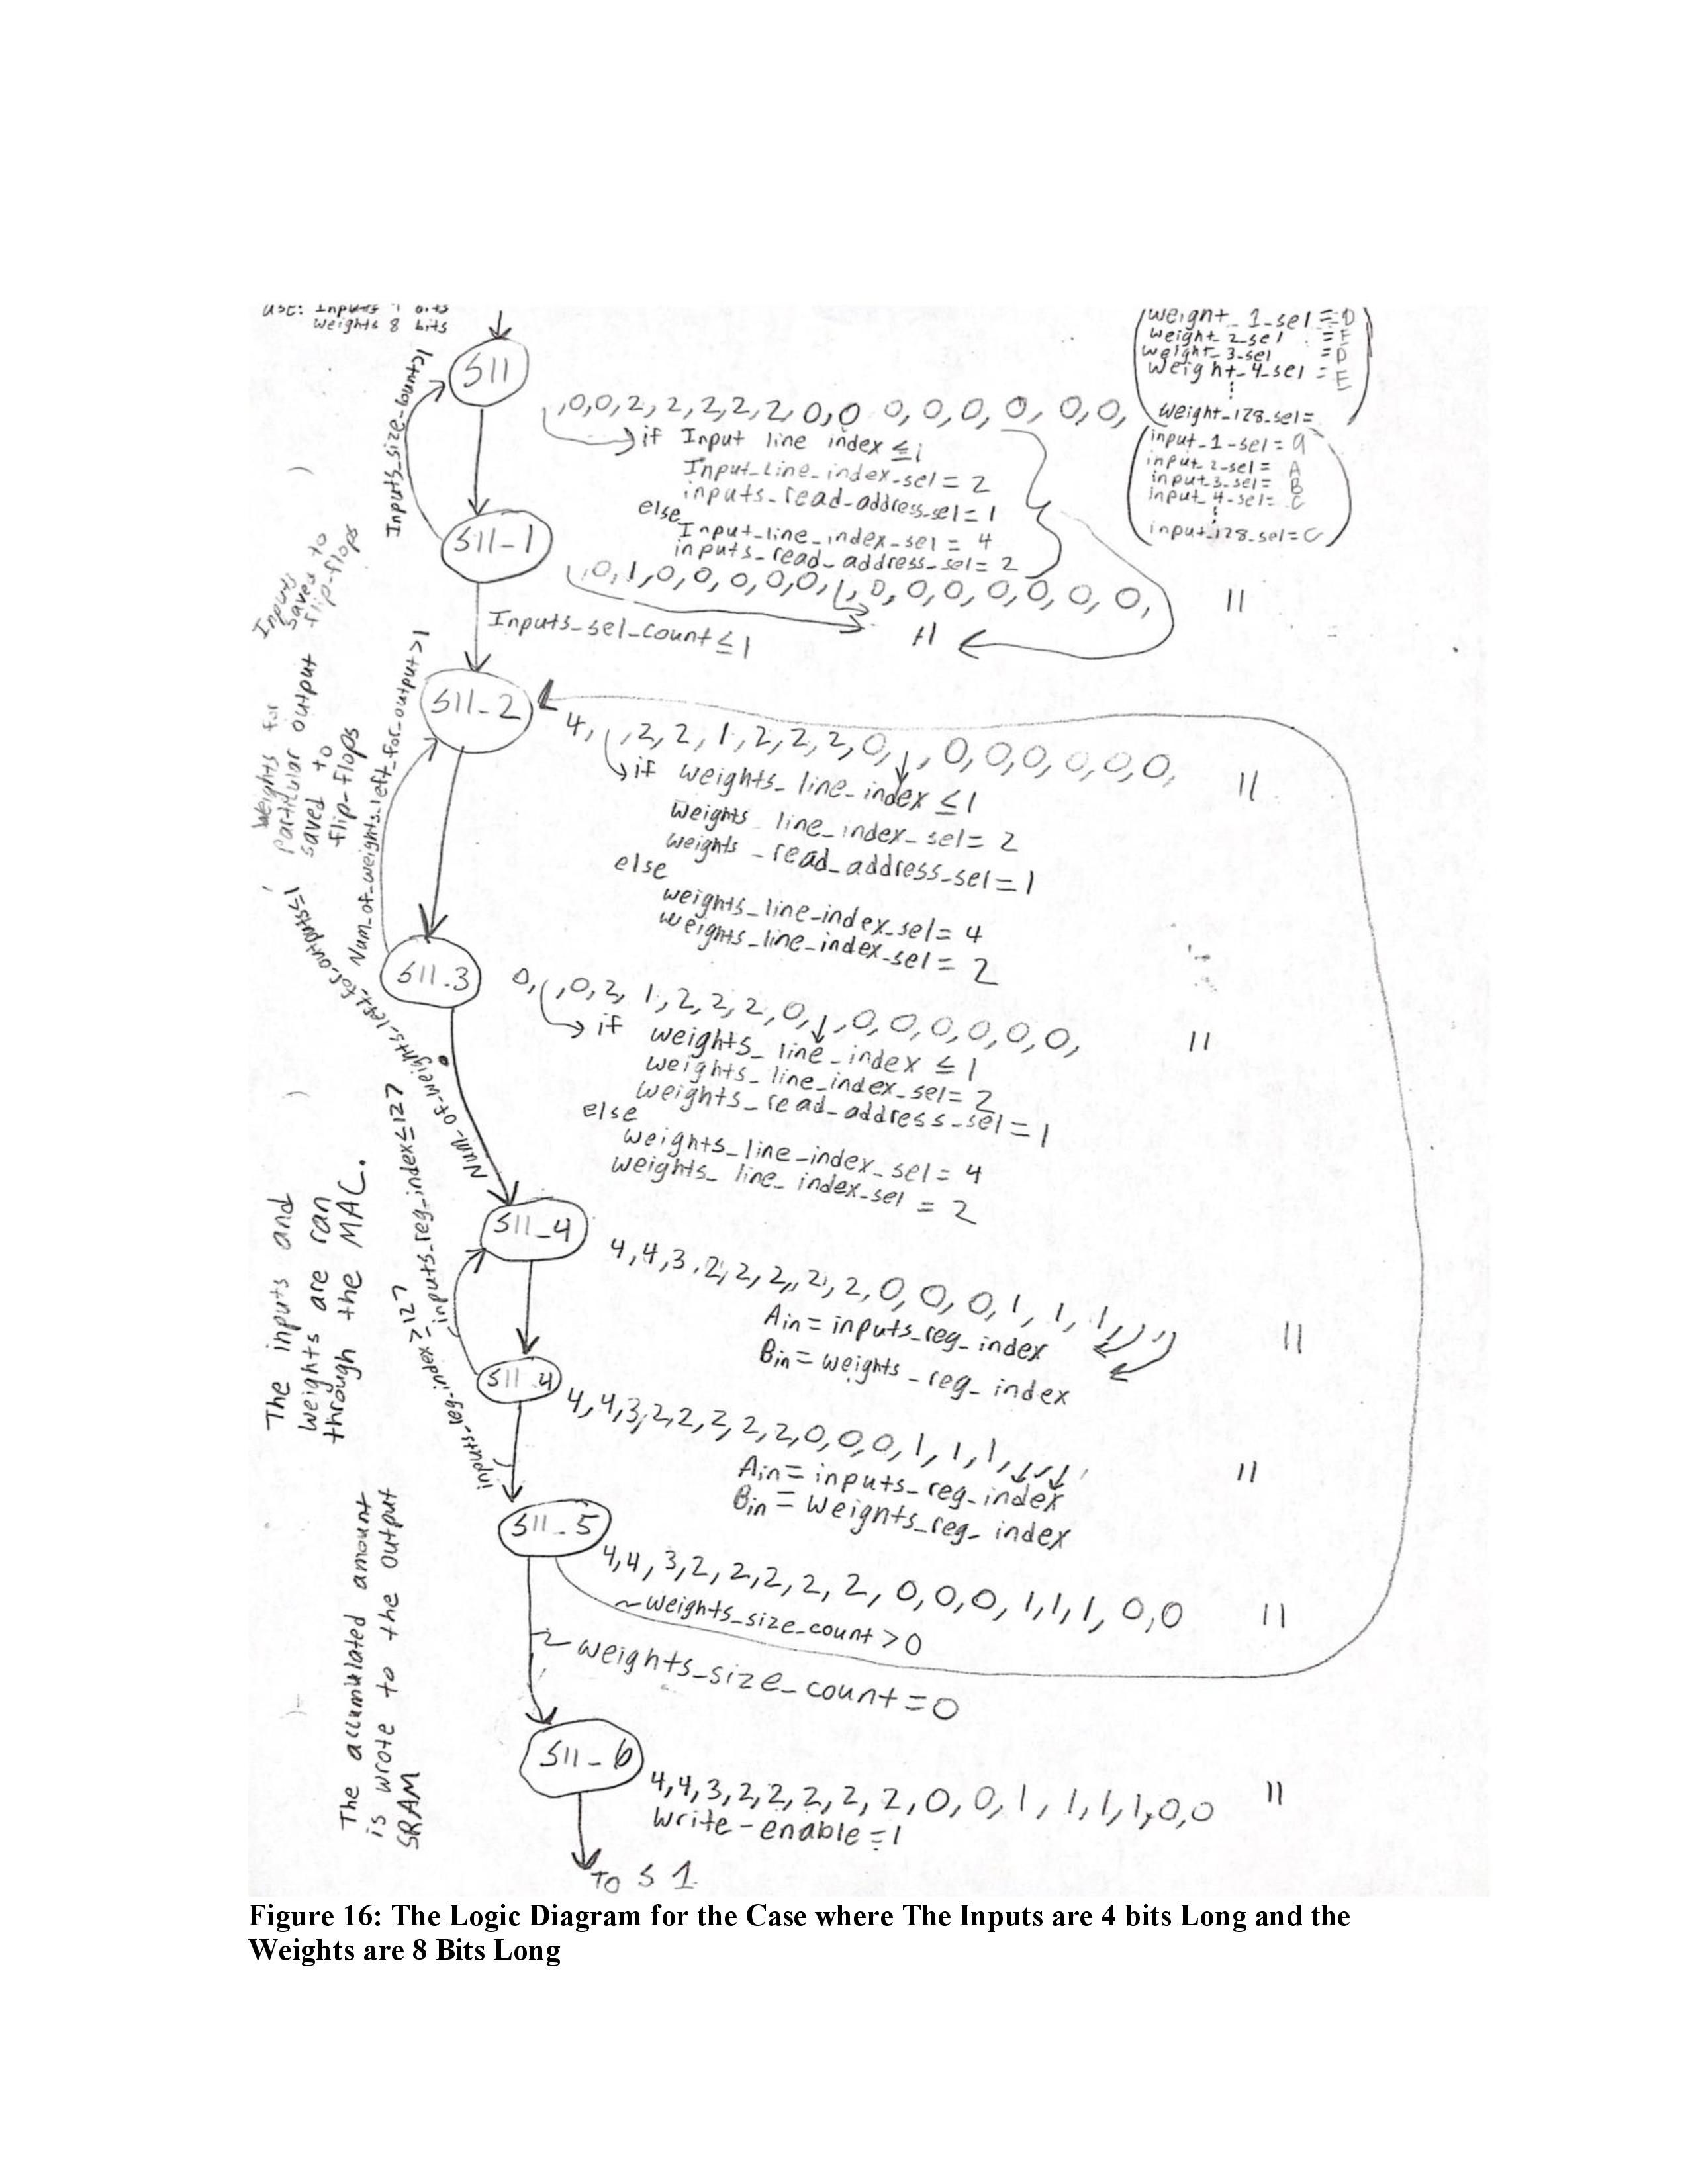 Weights 8 bits
S11
Inputs_size_count>1
,0,0,2,2,2,2,2,0,0 0,0,0,0,0,0,
if Input line index ≤1
Input_Line_index_sel=2
inputs_read_address_sel=1
else
Input_line_index_sel = 4
inputs_read_address_sel=2
Weight_1_sel = D
Weight_2_sel = E
Weight_3_sel = D
Weight_4_sel = E
Weight_128_sel=
input_1_sel = A
input_2_sel = A
input_3_sel= B
input_4_sel= C
input_128_sel=C
S11_1
,0,1,0,0,0,0,0,1,0,0,0,0,0,0,0,
11
Inputs_sel_count≤1
Inputs saved to flip-flops
S11_2
4, ,2,2,1,2,2,2,0, ,0,0,0,0,0,0,
11
if weights_line_index ≤1
Weights line_index_sel=2
Weights_read_address_sel=1
else
weights_line_index_sel=4
weights_line_index_sel=2
Weights for particular output saved to flip-flops
Num_of_weights_left_for_output>1
S11_3
0, ,0,2,1,2,2,2,0, ,0,0,0,0,0,0,
11
if weights_line_index ≤1
weights_line_index_sel=2
Weights_read_address_sel=1
else
weights_line_index_sel=4
weights_line_index_sel=2
Num_of_weights_left_for_outputs≤1
S11_4
4,4,3,2,2,2,2,2,0,0,0,1,1,1, , ,
11
Ain=inputs_reg_index
Bin=weights_reg_index
inputs_reg_index≤127
The inputs and weights are ran through the MAC.
S11_4
4,4,3,2,2,2,2,2,0,0,0,1,1,1, , ,
11
Ain=inputs_reg_index
Bin=Weights_reg_index
inputs_reg_index>127
S11_5
4,4,3,2,2,2,2,2,0,0,0,1,1,1,0,0
11
~weights_size_count>0
~weights_size_count=0
The accumulated amount is wrote to the output SRAM
S11_6
4,4,3,2,2,2,2,2,0,0,1,1,1,1,0,0
11
Write-enable=1
TO S1
Figure 16: The Logic Diagram for the Case where The Inputs are 4 bits Long and the
Weights are 8 Bits Long